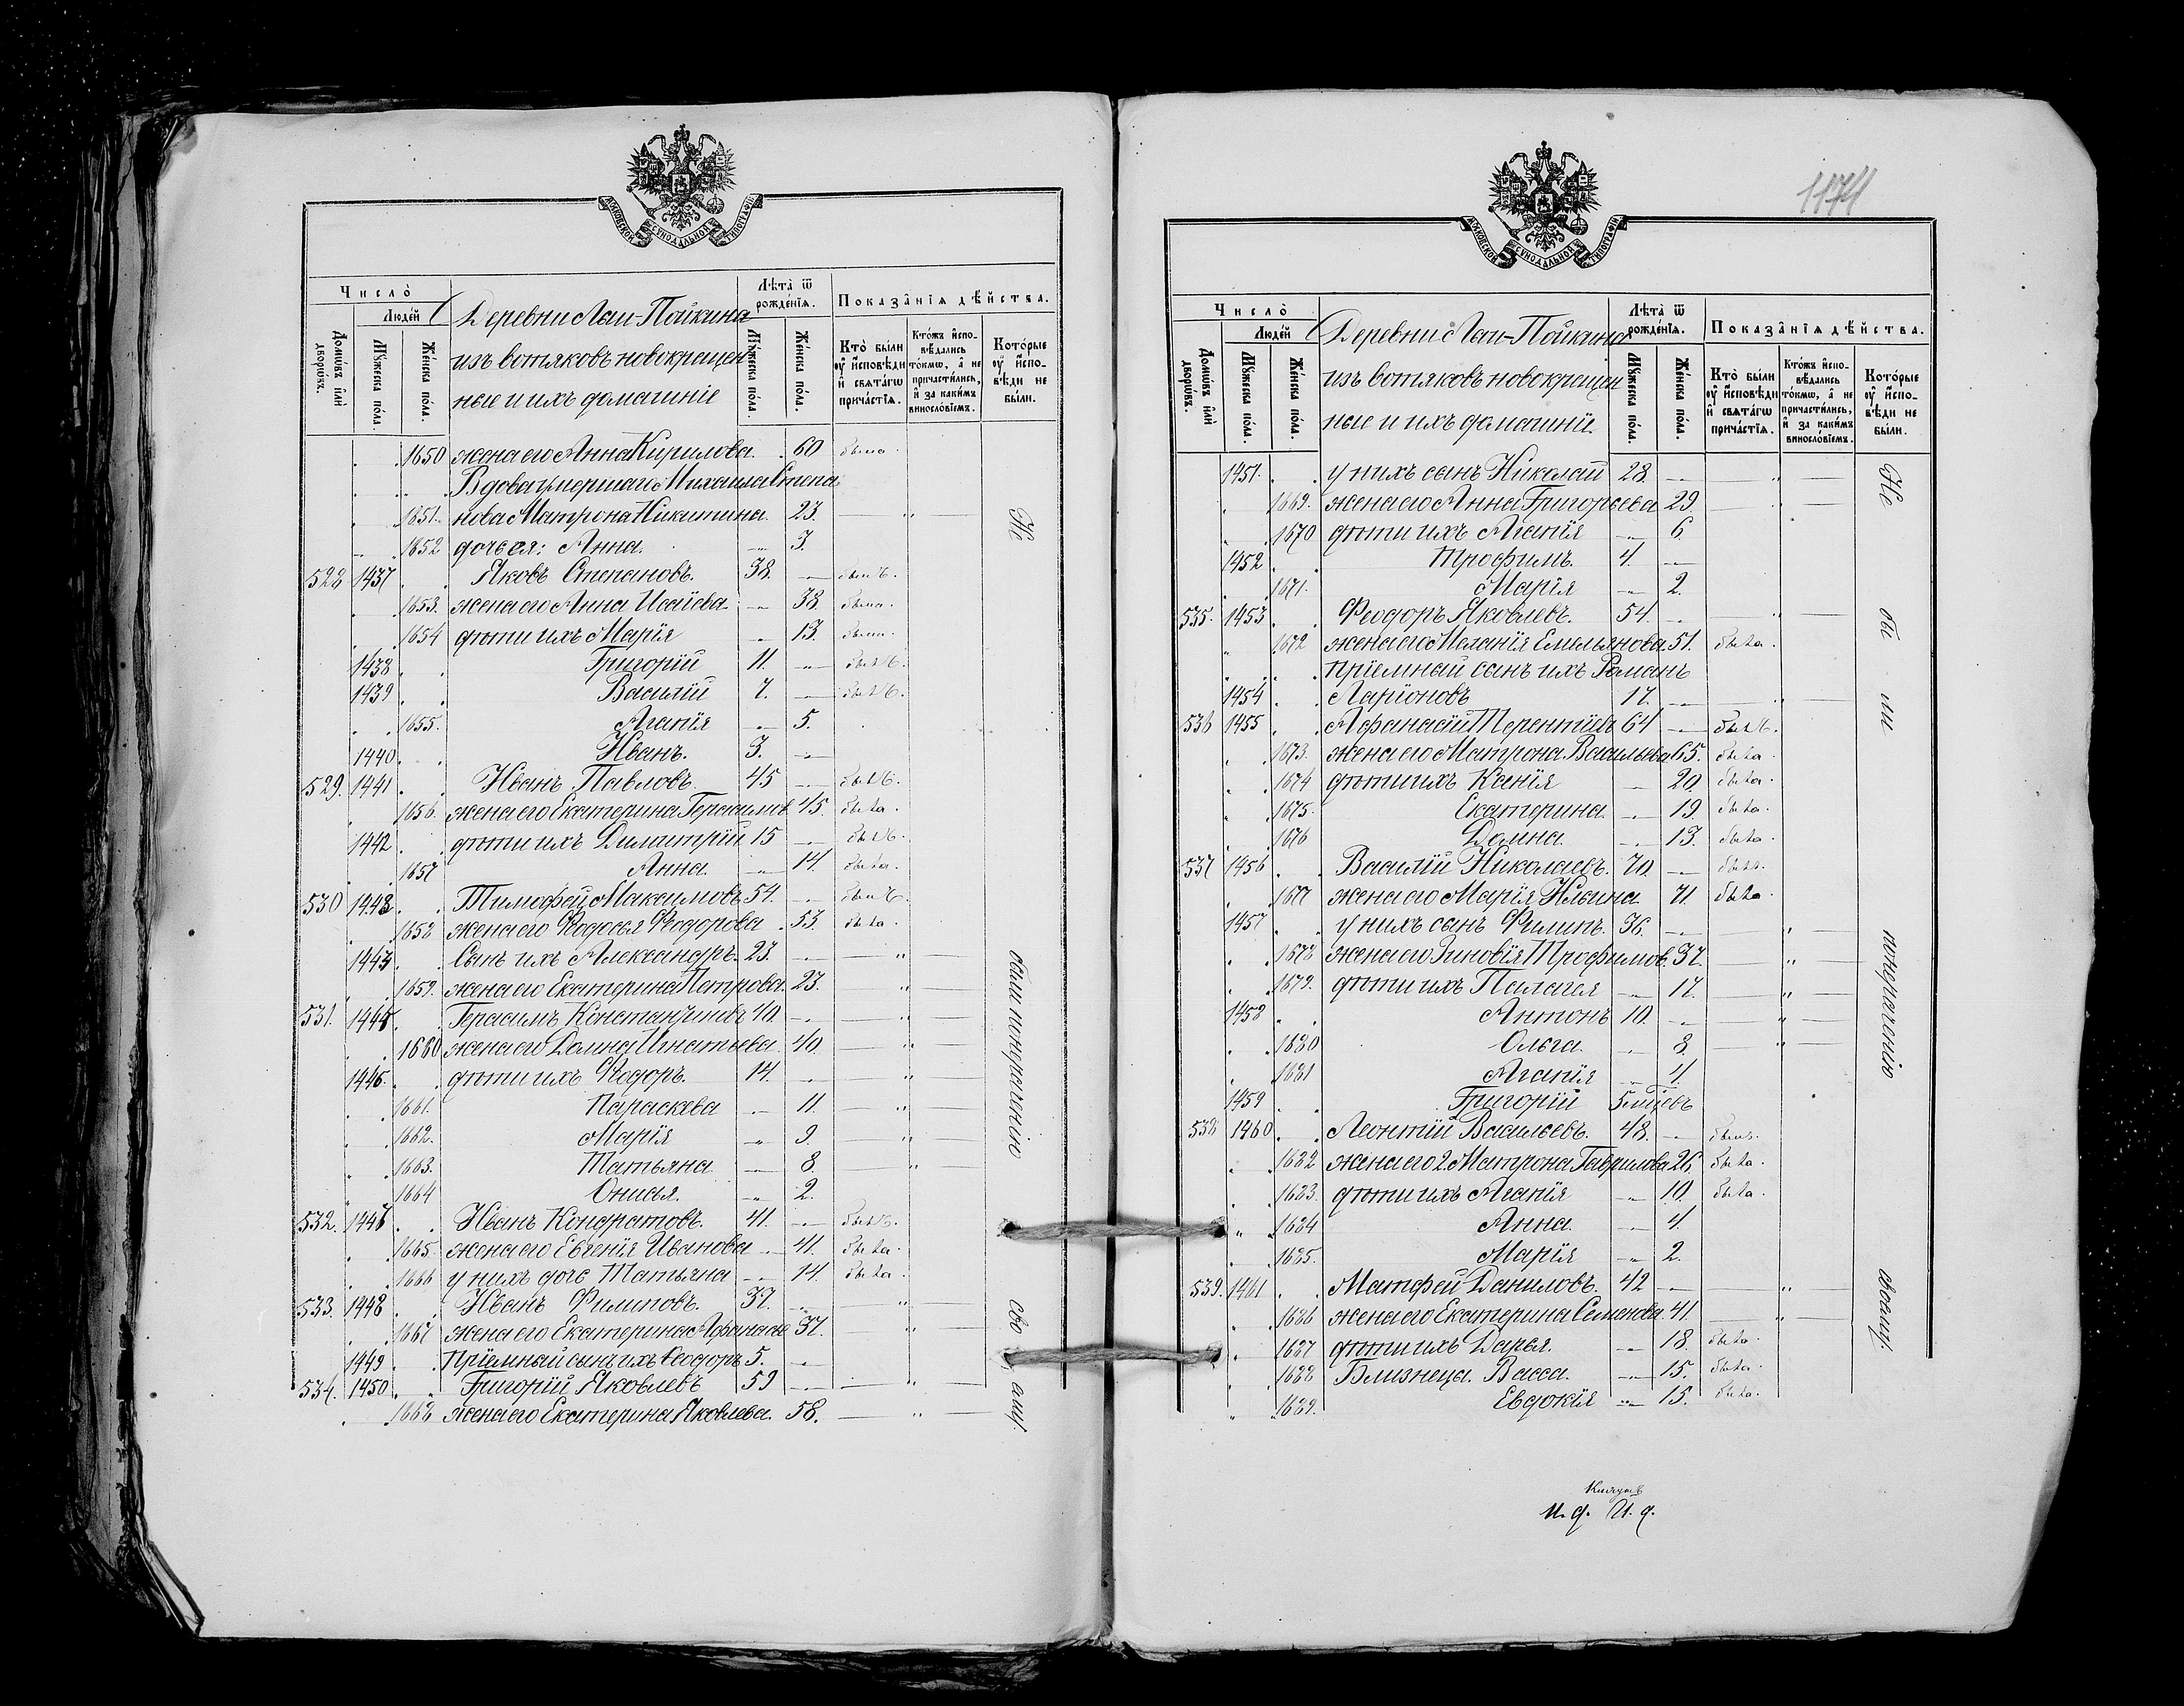 МОСКОВСКОЙ СѴНОДАЛЬНОЙ ТИПОГРАФІИ
Число̀
Людей
Домѡвъ и҆лѝ дворѡвъ.
Мꙋ́жеска по́ла.
Же́нска по́ла.
Деревни Лыи-Пойкина
изъ вотяковъ новокрещен
ные и ихъ домашніе
Лѣта̀ ѿ рожде́нїѧ.
Мꙋ́жеска по́ла.
Же́нска по́ла.
Показа̑нїѧ дѣ́йства.
Кто̀ бы́ли оу҆ и҆сповѣ́ди и҆ свѧта́гѡ прича́стїѧ.
Кто́жъ и҆спо-вѣ́дались то́кмѡ, а҆ не причасти́лись, и҆ за каки́мъ винослѡ́вїемъ.
Кото́рые оу҆ и҆спо-вѣ́ди не бы́ли.
1650 жена его Анна Кирилова. 60 была.
Вдова умершаго Михаила Степа
1651. нова Матрона Никитина. 23. — " —
1652 дочь ея: Анна. — 3.
528 1437 Яковъ Степановъ. 38. — былъ.
1653. жена его Анна Исаіева. — 38. была.
1654 дѣти ихъ Марія — 13. была.
1438 Григорій 11. — былъ.
1439 Василій 7. — былъ.
1655. Агапія — 5.
1440 Иванъ. 3. —
529. 1441 Иванъ Павловъ 45 — былъ.
1656. жена его Екатерина Герасимов. 45. была.
1442 дѣти ихъ Димитрій 15 — былъ.
1657 Анна. — 14. была.
530 1443 Тимофей Максимовъ 54. — былъ.
1658 жена его Ѳедосья Ѳеодорова. 53. была.
1443 Сынъ ихъ Александръ. 23. — — " —
1659. жена его Екатерина Петрова. 23. — " —
531. 1444 Герасимъ Константиновъ 40. — — " —
1660 жена его Домна Игнатьева. 40. — " —
1445. дѣти ихъ Ѳедоръ. 14. — — " —
1661. Параскева — 11. — " —
1662. Марія — 9. " —
1663. Татьяна — 8. "
1664 Онисья. — 2.
532. 1446 Иванъ Кондратовъ. 41. — былъ.
1665. жена его Евгенія Иванова — 41. была.
1666 у нихъ дочь Татьяна — 14. была.
533. 1448 Иванъ Филиповъ. 37. — — " —
1667 жена его Екатерина Афанасье 37. — " —
1449 Пріемный сынъ ихъ Ѳеодоръ 5. —
534. 1450 Григорій Яковлевъ 59 — — " —
1668 жена его Екатерина Яковлева. 58. — " —
Не были по нераченію своему.
1174
МОСКОВСКОЙ СѴНОДАЛЬНОЙ ТИПОГРАФІИ
Число̀
Людей
Домѡвъ и҆лѝ дворѡвъ.
Мꙋ́жеска по́ла.
Же́нска по́ла.
Деревни Лыи-Пойкина
изъ вотяковъ новокрещен
ные и ихъ домашніе.
Лѣта̀ ѿ рожде́нїѧ.
Мꙋ́жеска по́ла.
Же́нска по́ла.
Показа̑нїѧ дѣ́йства.
Кто̀ бы́ли оу҆ и҆сповѣ́ди и҆ свѧта́гѡ прича́стїѧ.
Кто́жъ и҆спо-вѣ́дались то́кмѡ, а҆ не причасти́лись, и҆ за каки́мъ винослѡ́вїемъ.
Кото́рые оу҆ и҆спо-вѣ́ди не бы́ли.
1451. у нихъ сынъ Николай 28. — — " —
1669. жена его Анна Григорьева 29. — " —
1670 дѣти ихъ Агапія — 6.
1452 Трофимъ. 4. —
1671. Марія — 2.
535. 1453 Ѳеодоръ Яковлевъ. 54. — — " —
1672 жена его Меланія Емельянова. 51. была.
пріемный сынъ ихъ Романъ
1454 Ларіоновъ 17. — — " —
536 1455 Афанасій Терентіевъ 64 — былъ.
1673. жена его Матрона Васильева 65. была.
1674 дѣти ихъ Ксенія — 20. была.
1675. Екатерина. — 19. была.
1676 Домна. — 13. была.
537 1456 Василій Николаевъ. 70. — былъ.
1677 жена его Марія Ильина. 71. была.
1457 у нихъ сынъ Филипъ. 36. — — " —
1678 жена его Зиновія Трофимов. 37. — " —
1679. дѣти ихъ Пелагея — 17. — " —
1458 Антонъ 10. — — " —
1680 Ольга. — 8. — " —
1681 Агапія — 4.
1459 Григорій 5 мѣцевъ
538 1460 Леонтій Васильевъ. 48. — былъ.
1682 жена его 2. Матрона Гаврилова 26. была.
1683. дѣти ихъ Агапія — 10. была.
1684 Анна. — 4.
1685. Марія — 2.
539. 1461 Матфей Даниловъ. 42 — — " —
1686 жена его Екатерина Семенова. 41. — " —
1687 дѣти ихъ Дарья. — 18. была.
1688 Близнеца. Васса. — 15. была.
1689. Евдокія — 15. была.
Не были по нераченію своему.
И. д. И. д.